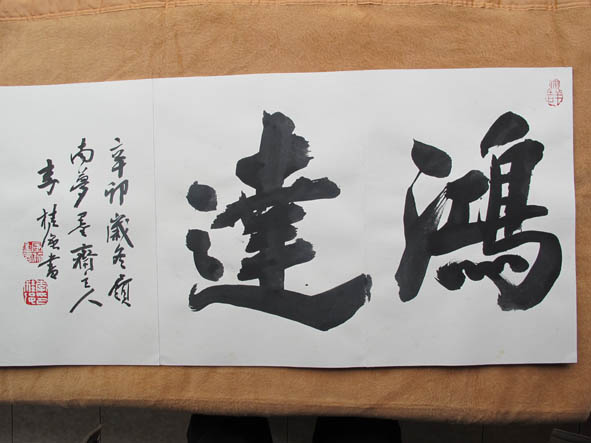 鴻達
辛卯歲冬嶺
南夢墨齋主人
李桂恩書